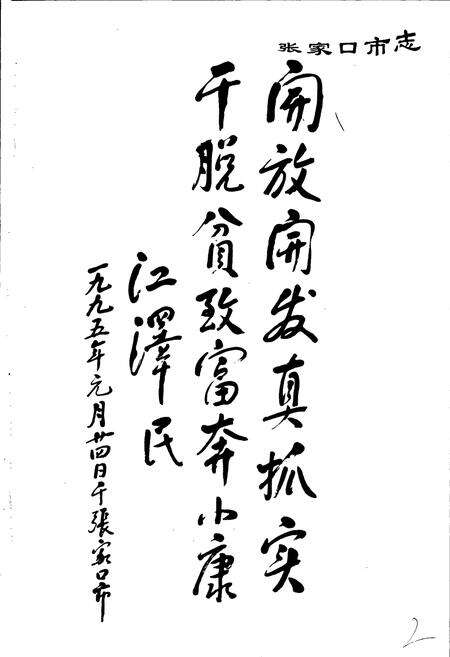 张家口市志
開放開发真抓实
干脱貧致富奔小康
江澤民
一九九五年元月廿四日于張家口市
2